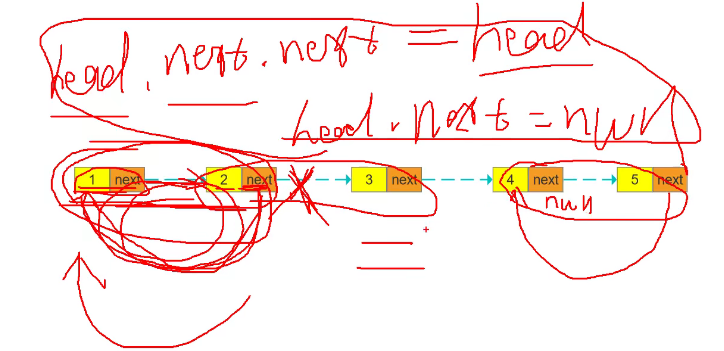 head. next. next = head
head. next = null
1 next 2 next 3 next 4 next 5 next
null